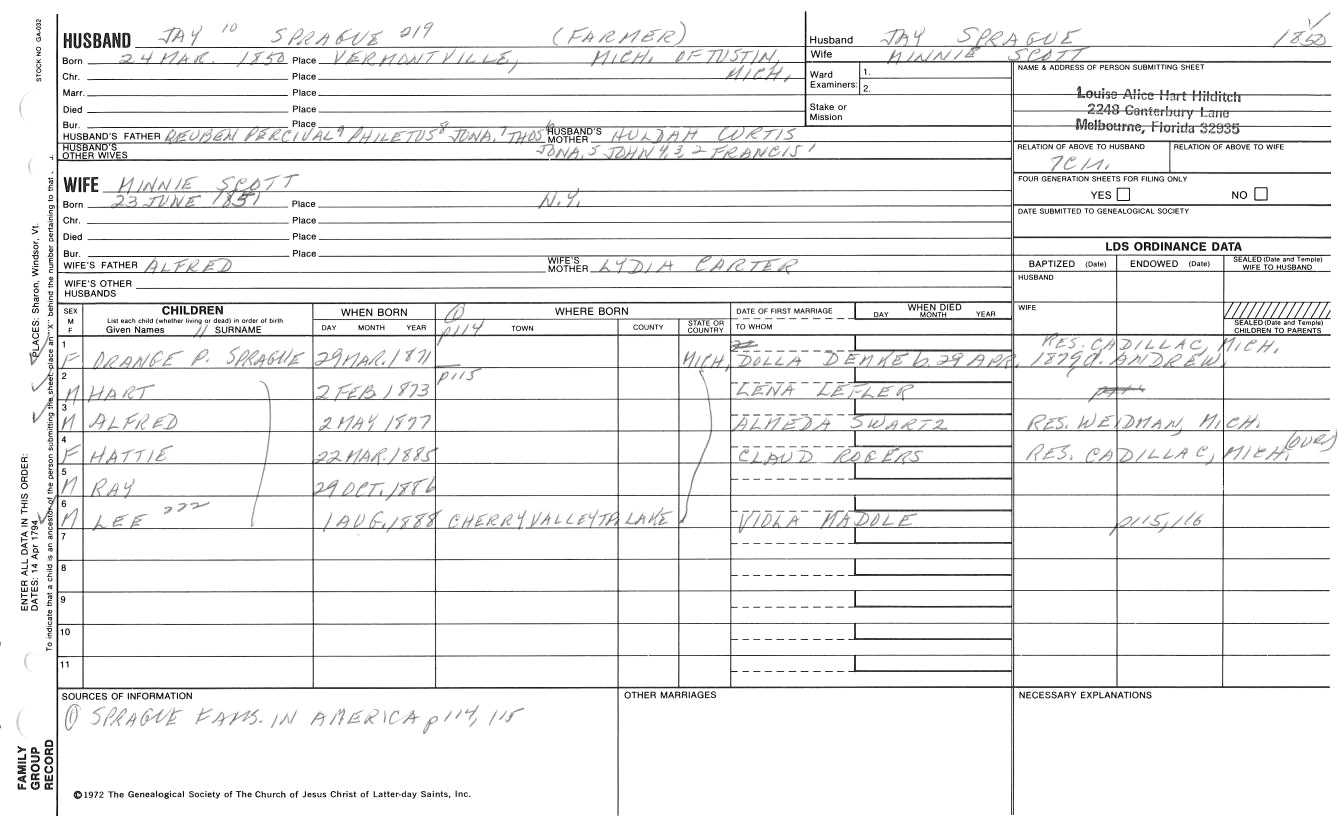 STOCK NO GA-032
HUSBAND JAY 10 SPRAGUE 219 (FARMER)
Born 24 MAR. 1850 Place VERMONTVILLE, MICH. OF TUSTIN,
Chr. Place MICH.
Marr. Place
Died Place
Bur. Place
HUSBAND'S FATHER REUBEN PERCIVAL 9 PHILETUS 8 JONA. 7 THOS 6 HUSBAND'S MOTHER HULDAH CURTIS
HUSBAND'S OTHER WIVES JONA. 5 JOHN 4, 3, 2 FRANCIS 1
Husband JAY SPRAGUE 1850
Wife MINNIE SCOTT
Ward Examiners: 1.
2.
Stake or Mission
NAME & ADDRESS OF PERSON SUBMITTING SHEET
Louise Alice Hart Hilditch
2248 Canterbury Lane
Melbourne, Florida 32935
RELATION OF ABOVE TO HUSBAND RELATION OF ABOVE TO WIFE
FOUR GENERATION SHEETS FOR FILING ONLY
YES NO
DATE SUBMITTED TO GENEALOGICAL SOCIETY
WIFE MINNIE SCOTT
Born 23 JUNE 1851 Place N.Y.
Chr. Place
Died Place
Bur. Place
WIFE'S FATHER ALFRED WIFE'S MOTHER LYDIA CARTER
WIFE'S OTHER HUSBANDS
LDS ORDINANCE DATA
BAPTIZED (Date) ENDOWED (Date) SEALED (Date and Temple) WIFE TO HUSBAND
HUSBAND
WIFE
SEALED (Date and Temple) CHILDREN TO PARENTS
SEX M F
CHILDREN
List each child (whether living or dead) in order of birth
Given Names 11 SURNAME
WHEN BORN DAY MONTH YEAR
① p114 WHERE BORN TOWN COUNTY STATE OR COUNTRY
DATE OF FIRST MARRIAGE TO WHOM
WHEN DIED DAY MONTH YEAR
1 F ORANGE P. SPRAGUE 29 MAR. 1871 MICH. DOLLA DEMKE b. 29 APR. 1879, d. ANDREW. RES. CADILLAC, MICH.
2 M HART 2 FEB 1873 p115 LENA LEFLER
3 M ALFRED 2 MAY 1877 ALMEDA SWARTZ RES. WEIDMAN, MICH.
4 F HATTIE 22 MAR. 1885 CLAUD ROGERS RES. CADILLAC, MICH. (OVER)
5 M RAY 29 OCT. 1886
6 M LEE 222 1 AUG. 1888 CHERRY VALLEY TP. LAKE VIOLA MADOLE p115, 116
7
8
9
10
11
SOURCES OF INFORMATION
① SPRAGUE FAMS. IN AMERICA p114, 115
OTHER MARRIAGES
NECESSARY EXPLANATIONS
©1972 The Genealogical Society of The Church of Jesus Christ of Latter-day Saints, Inc.
FAMILY GROUP RECORD
ENTER ALL DATA IN THIS ORDER:
DATES: 14 Apr 1794
PLACES: Sharon, Windsor, Vt.
To indicate that a child is an ancestor of the person submitting the sheet, place an "X" behind the number pertaining to that